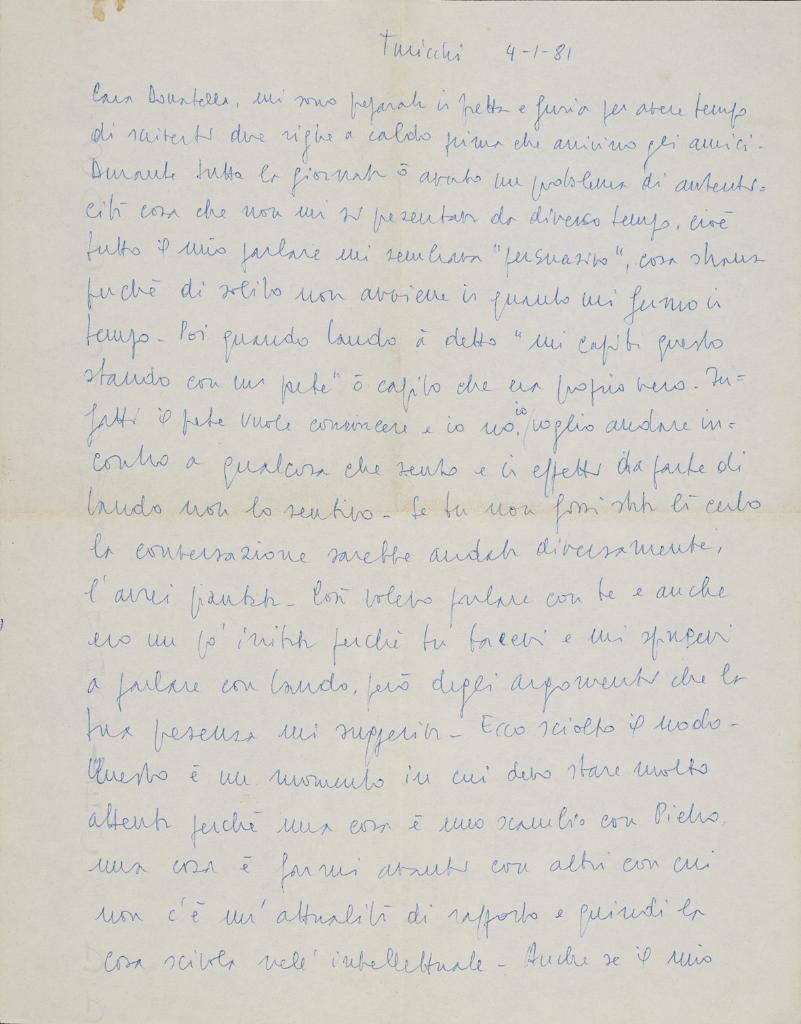 Turicchi 4-1-81
Cara Donatella, mi sono preparata in fretta e furia per avere tempo
di scriverti due righe a caldo prima che arrivino gli amici.
Durante tutta la giornata ò avuto un problema di autenti=
cità cosa che non mi si presentava da diverso tempo, cioè
tutto il mio parlare mi sembrava "persuasivo", cosa strana
perché di solito non avviene in quanto mi fermo in
tempo. Poi quando Lando à detto "mi capita questo
stando con un prete" ò capito che era proprio vero. In=
fatti il prete vuole convincere e io no, io voglio andare in=
contro a qualcosa che sento e in effetti da parte di
Lando non lo sentivo. Se tu non fossi stata lì certo
la conversazione sarebbe andata diversamente,
l'avrei piantata. Così volevo parlare con te e anche
ero un po' irritata perché tu tacevi e mi spingevi
a parlare con Lando, però degli argomenti che la
tua presenza mi suggeriva. Ecco sciolto il nodo.
Questo è un momento in cui devo stare molto
attenta perché una cosa è uno scambio con Pietro,
una cosa è farmi avanti con altri con cui
non c'è un'attualità di rapporto e quindi la
cosa scivola nell'intellettuale. Anche se il mio